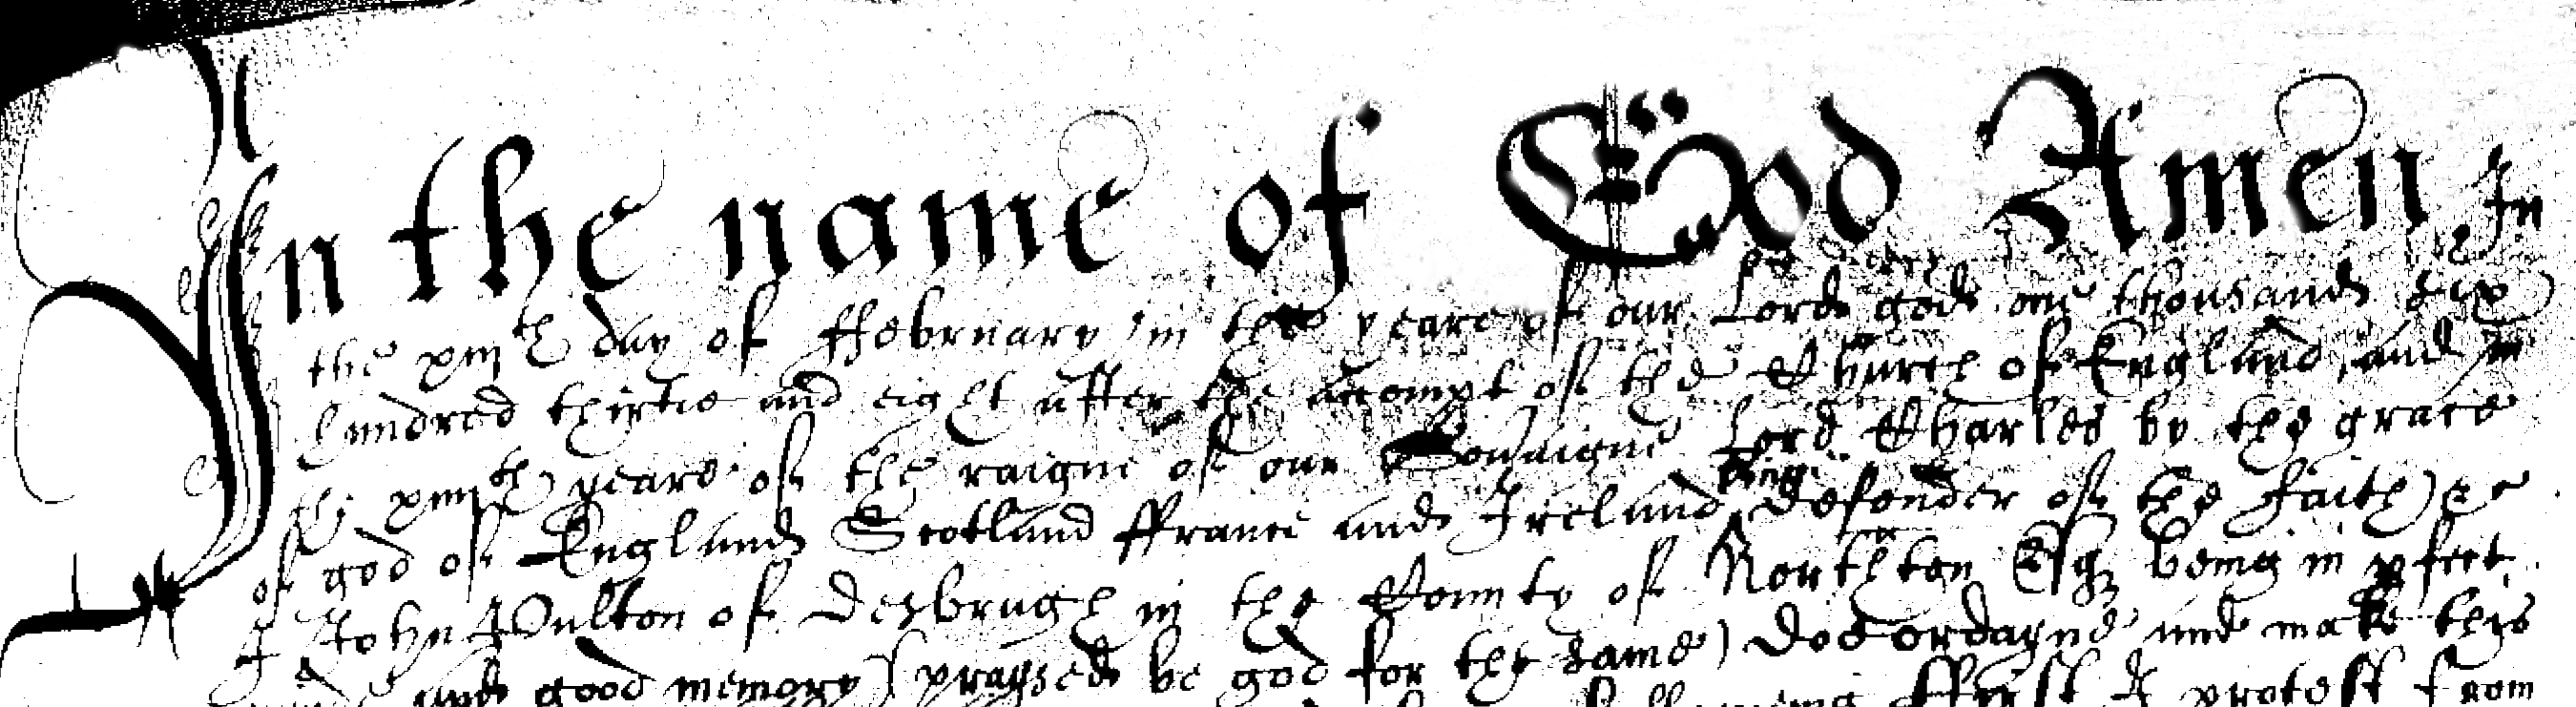 In the name of God Amen In
the xiijth day of ffebruary in the yeare of our Lord god one thousand six
hundred thirtie and eight after the accompt of the Church of England and in
the xiiijth yeare of the raigne of our Soueraigne Lord Charles by the grace
of god of England Scotland ffrance and Ireland king defender of the faith &c
I John Poulton of Desbrugh in the County of Northton Esqr being in pfect
and good memory (praysed be god for the same) doe ordayne and make this
ffyrst I protest from